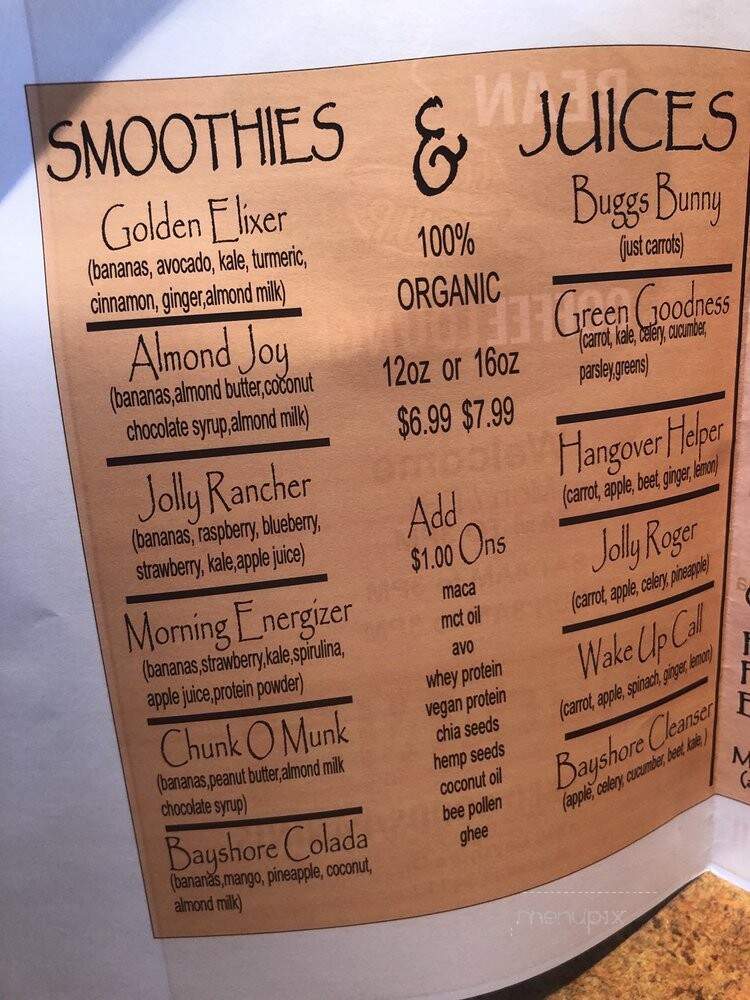 SMOOTHIES & JUICES
Golden Elixer
(bananas, avocado, kale, turmeric,
cinnamon, ginger,almond milk)
Almond Joy
(bananas,almond butter,coconut
chocolate syrup,almond milk)
Jolly Rancher
(bananas, raspberry, blueberry,
strawberry, kale,apple juice)
Morning Energizer
(bananas,strawberry,kale,spirulina,
apple juice,protein powder)
Chunk O Munk
(bananas,peanut butter,almond milk
chocolate syrup)
Bayshore Colada
(bananas,mango, pineapple, coconut,
almond milk)
100%
ORGANIC
12oz or 16oz
$6.99 $7.99
Add
$1.00 Ons
maca
mct oil
avo
whey protein
vegan protein
chia seeds
hemp seeds
coconut oil
bee pollen
ghee
Buggs Bunny
(just carrots)
Green Goodness
(carrot, kale, celery, cucumber,
parsley,greens)
Hangover Helper
(carrot, apple, beet, ginger, lemon)
Jolly Roger
(carrot, apple, celery, pineapple)
Wake Up Call
(carrot, apple, spinach, ginger, lemon)
Bayshore Cleanser
(apple, celery, cucumber, beet, kale, )
menupix